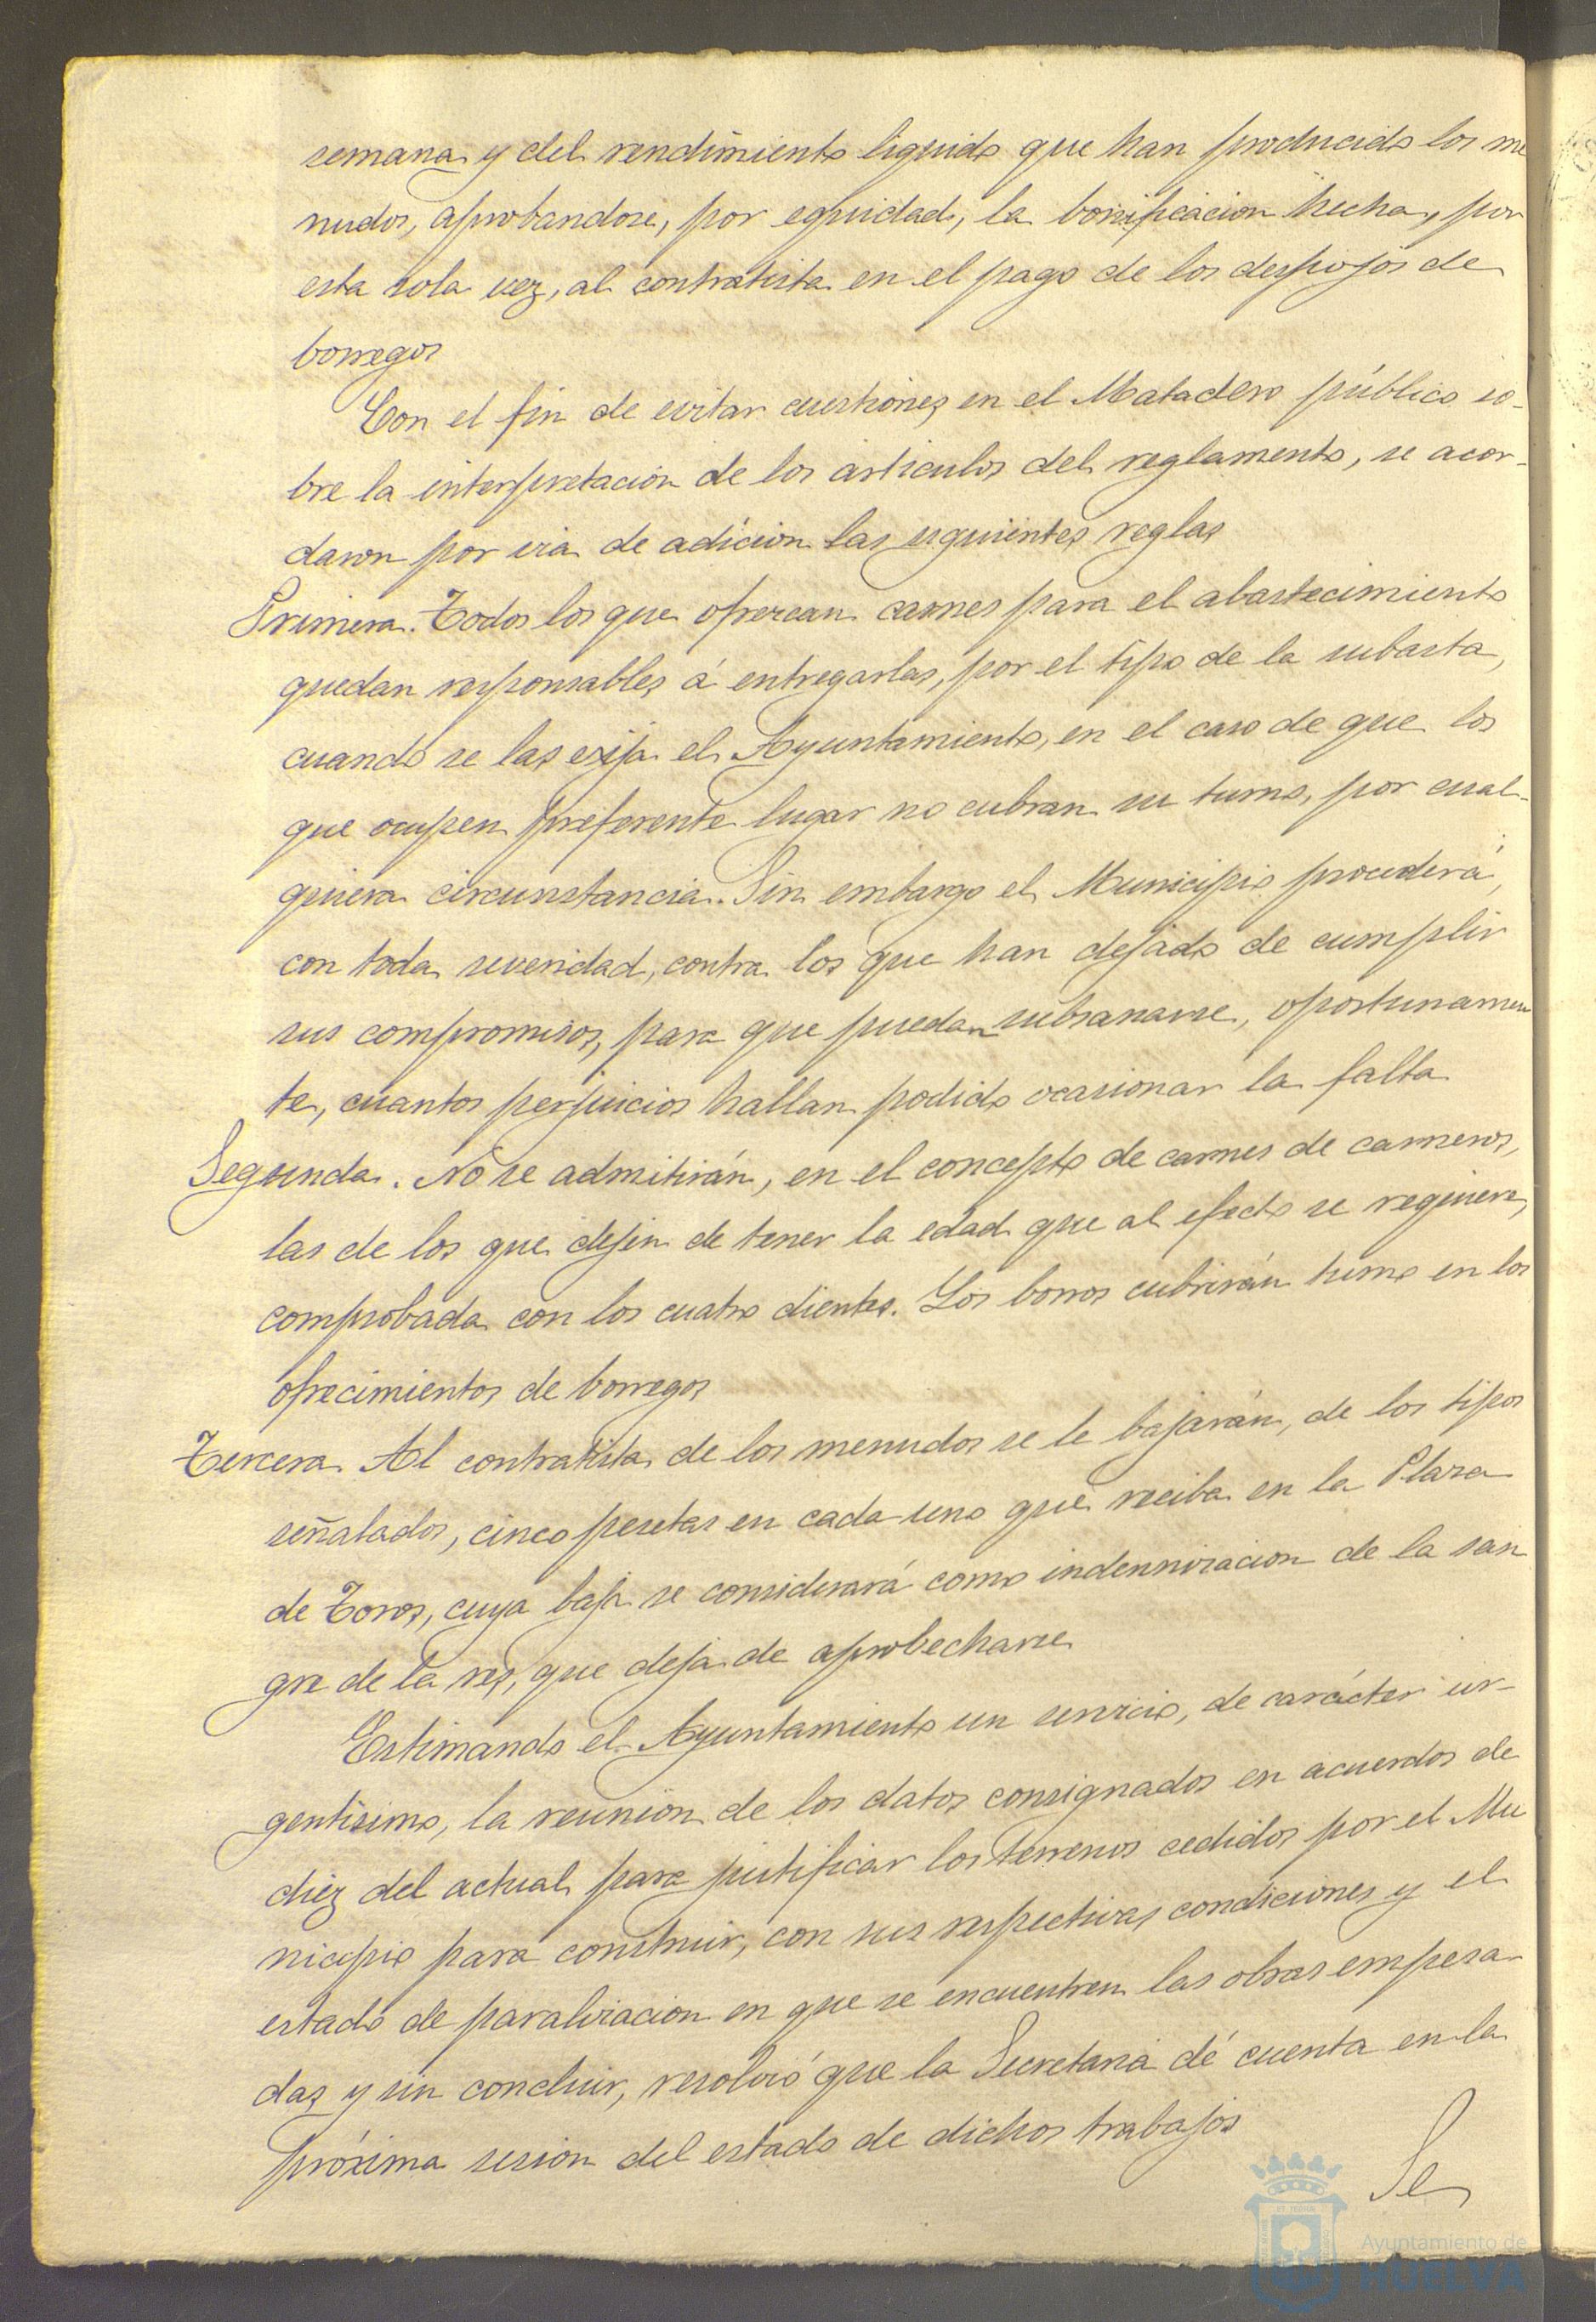 semana y del rendimiento liquido que han producido los me
nudos, aprobandose, por equidad, la bonificacion hecha, por
esta sola vez, al contratista en el pago de los despojos de
borregos
Con el fin de evitar cuestiones en el Matadero público so-
bre la interpretacion de los articulos del reglamento, se acor-
daron por via de adicion las siguientes reglas
Primera. Todos los que ofrezcan carnes para el abastecimiento
quedan responsables á entregarlas, por el tipo de la subasta,
cuando se las exija el Ayuntamiento, en el caso de que los
que ocupen preferente lugar no cubran su turno, por cual-
quiera circunstancia. Sin embargo el Municipio procederá,
con toda severidad, contra los que han dejado de cumplir
sus compromisos, para que puedan subsanarse, oportunamen
te, cuantos perjuicios hallan podido ocasionar la falta
Segunda. No se admitirán, en el concepto de carnes de carneros,
las de los que dejen de tener la edad que al efecto se requiere,
comprobada con los cuatro dientes. Los borros cubrirán turno en los
ofrecimientos de borregos
Tercera. Al contratista de los menudos se le bajarán, de los tipos
señalados, cinco pesetas en cada uno que reciba en la Plaza
de Toros, cuya baja se considerará como indemnizacion de la san
gre de la res, que deja de aprobecharse
Estimando el Ayuntamiento un servicio, de carácter ur-
gentisimo, la reunion de los datos consignados en acuerdos de
diez del actual para justificar los terrenos cedidos por el Mu
nicipio para construir, con sus respectivas condiciones y el
estado de paralizacion en que se encuentren las obras empeza-
das y sin concluir, resolvió que la Secretaria dé cuenta en la
próxima sesion del estado de dichos trabajos
Se
Ayuntamiento de
HUELVA